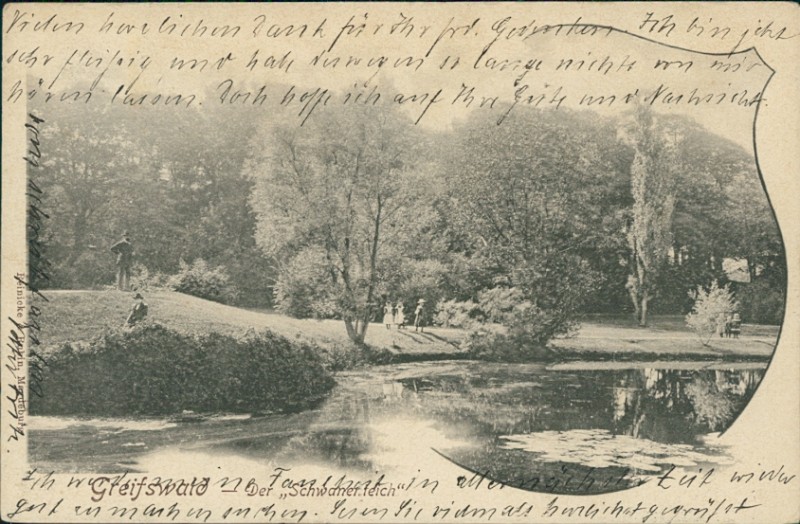 Vielen herzlichen Dank für Ihr frd. Gedenken. Ich bin jetzt
sehr fleissig und habe deswegen so lange nichts von mir
hören lassen. Doch hoffe ich auf Ihre Güte und Nachsicht.
Ich werde meine Faulheit in allernächster Zeit wieder
gut zu machen suchen. Seien Sie vielmals herzlichst gegrüsst
von
Greifswald – Der „Schwanenteich“